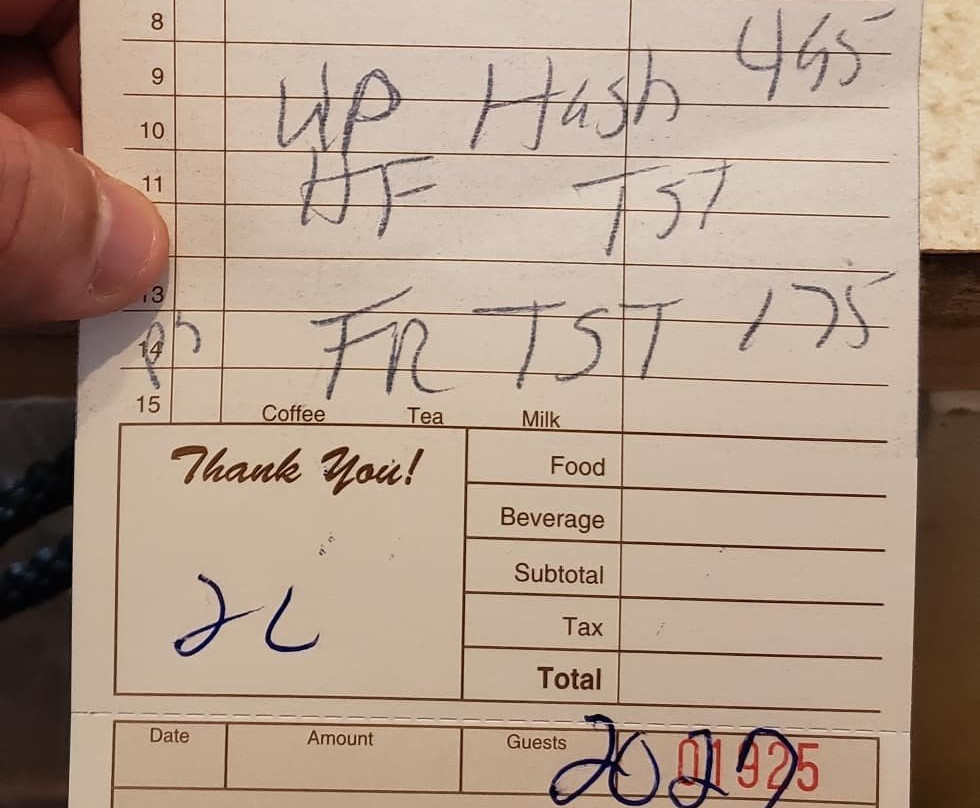 8
9 465
10 WP Hash
11 HF TST
13
14 FR TST 175
15 Coffee Tea Milk
Thank You!
Food
Beverage
Subtotal
Tax
Total
2C
Date Amount Guests 2027 01925